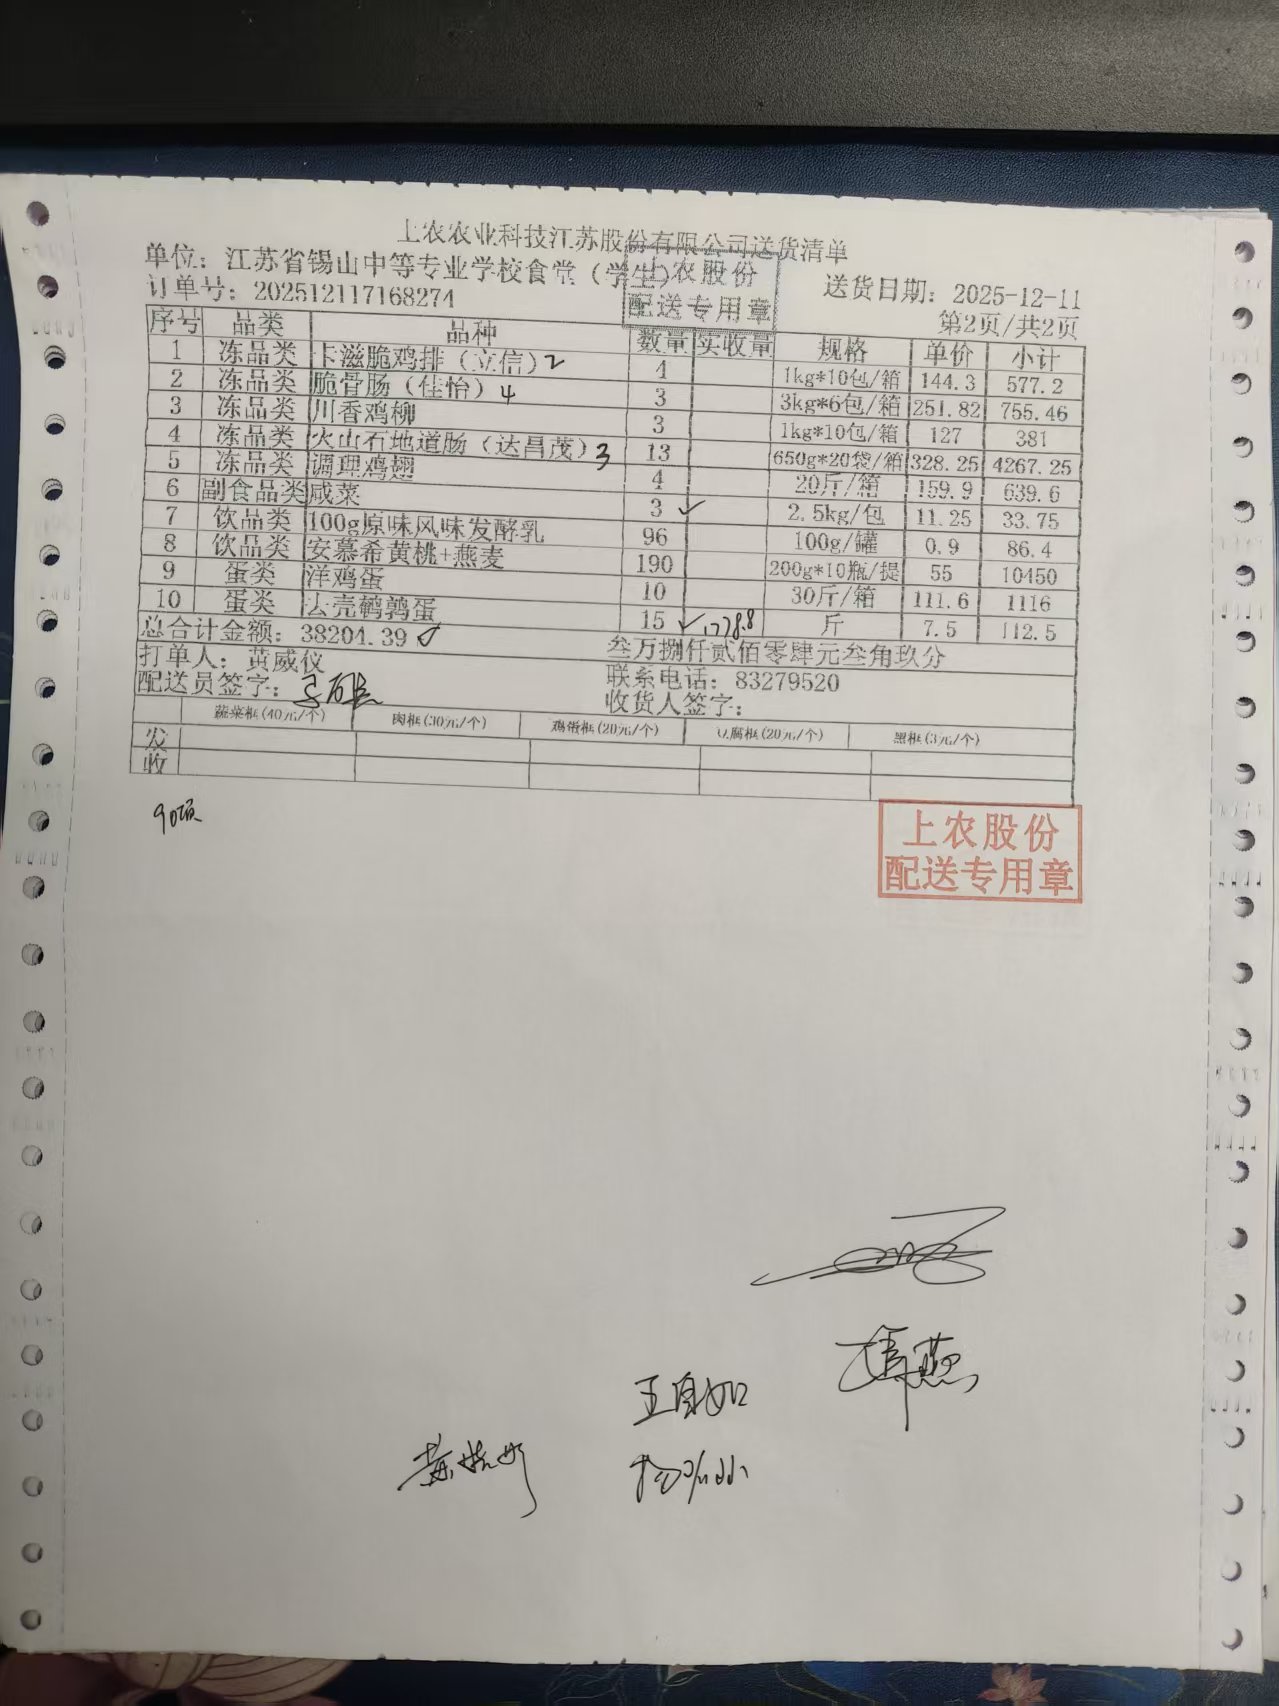 上农农业科技江苏股份有限公司送货清单
单位：江苏省锡山中等专业学校食堂（学生）
上农股份
配送专用章
订单号：202512117168274
送货日期：2025-12-11
第2页/共2页
序号 品类 品种 数量 实收量 规格 单价 小计
1 冻品类 卡滋脆鸡排（立信）2 4 1kg*10包/箱 144.3 577.2
2 冻品类 脆骨肠（佳怡）4 3 3kg*6包/箱 251.82 755.46
3 冻品类 川香鸡柳 3 1kg*10包/箱 127 381
4 冻品类 火山石地道肠（达昌茂）3 13 650g*20袋/箱 328.25 4267.25
5 冻品类 调理鸡翅 4 20斤/箱 159.9 639.6
6 副食品类 咸菜 3 ✓ 2.5kg/包 11.25 33.75
7 饮品类 100g原味风味发酵乳 96 100g/罐 0.9 86.4
8 饮品类 安慕希黄桃+燕麦 190 200g*10瓶/提 55 10450
9 蛋类 洋鸡蛋 10 30斤/箱 111.6 1116
10 蛋类 去壳鹌鹑蛋 15 ✓ 1778.8 斤 7.5 112.5
总合计金额：38204.39 叁万捌仟贰佰零肆元叁角玖分
打单人：黄威仪 联系电话：83279520
配送员签字： 收货人签字：
蔬菜框(40元/个) 肉框(30元/个) 鸡蛋框(20元/个) 豆腐框(20元/个) 黑框(3元/个)
发
收
90项
上农股份
配送专用章